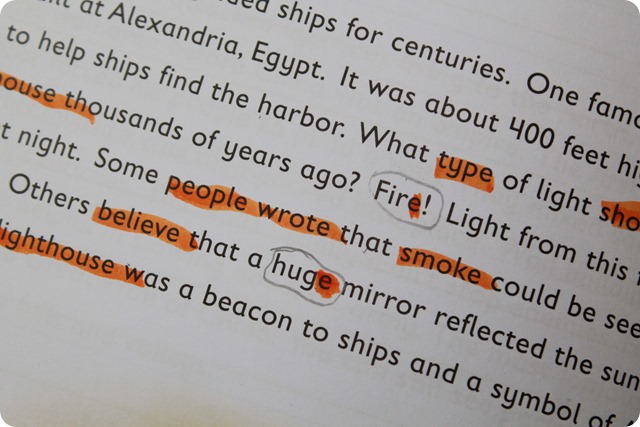 ships for centuries. One
at Alexandria, Egypt. It was about 400 feet
to help ships find the harbor. What type of light
thousands of years ago? Fire! Light from this
night. Some people wrote that smoke could be
Others believe that a huge mirror reflected the
lighthouse was a beacon to ships and a symbol of